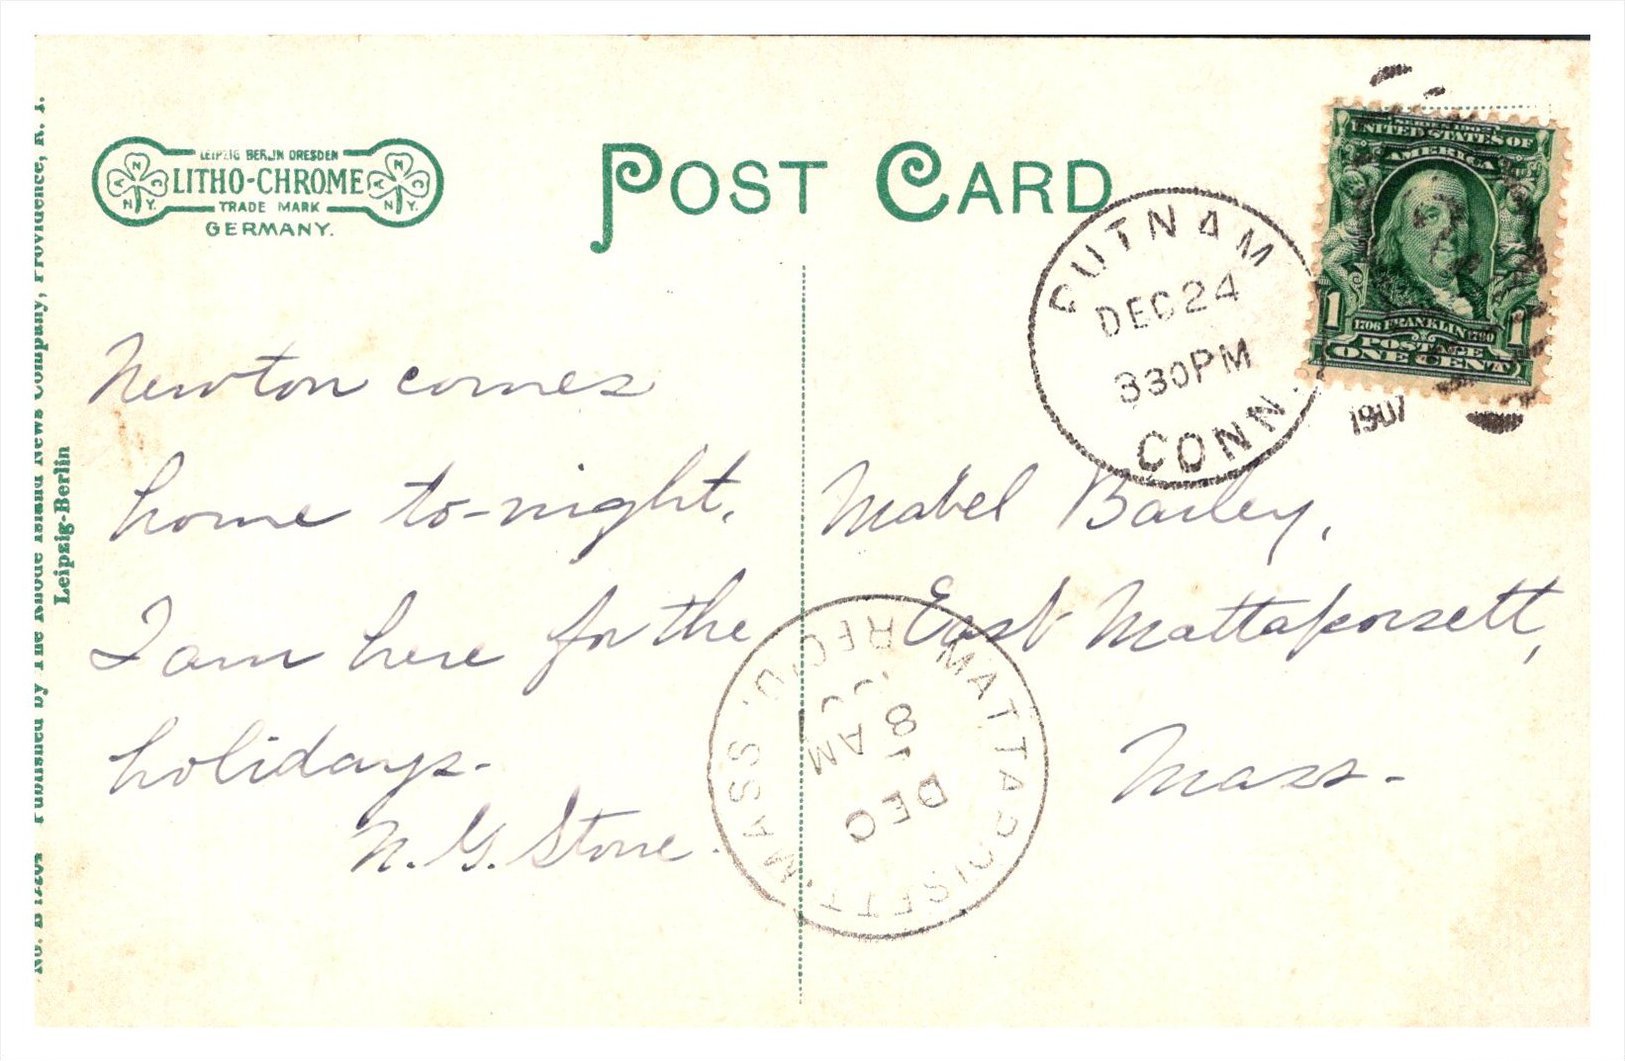 LEIPZIG BERLIN DRESDEN
LITHO-CHROME
TRADE MARK
GERMANY.
POST CARD
PUTNAM
DEC 24
330PM
CONN.
1907
UNITED STATES OF
AMERICA
1 1
1706 FRANKLIN 1790
POSTAGE
ONE CENT
Newton comes
home to-night.
I am here for the
holidays.
N. G. Stone.
Mabel Bailey,
East Mattapoisett,
Mass.
MATTAPOISETT, MASS.
REC'D.
DEC
8 AM
Published by The Rhode Island News Company, Providence, R. I.
Leipzig-Berlin